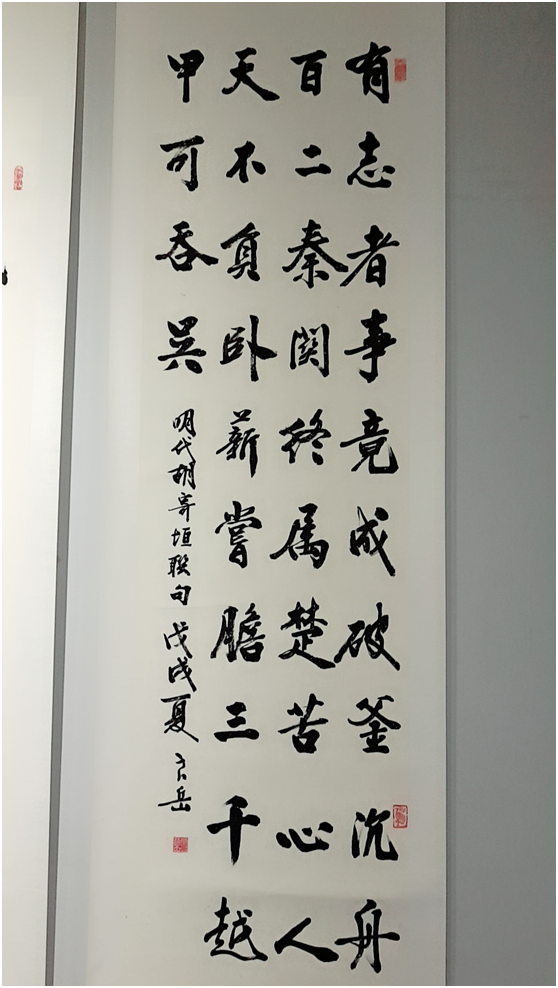 有志者事竟成破釜沉舟
百二秦関终属楚苦心人
天不負卧薪嘗膽三千越
甲可吞吴
明代胡寄垣联句戊戌夏岳